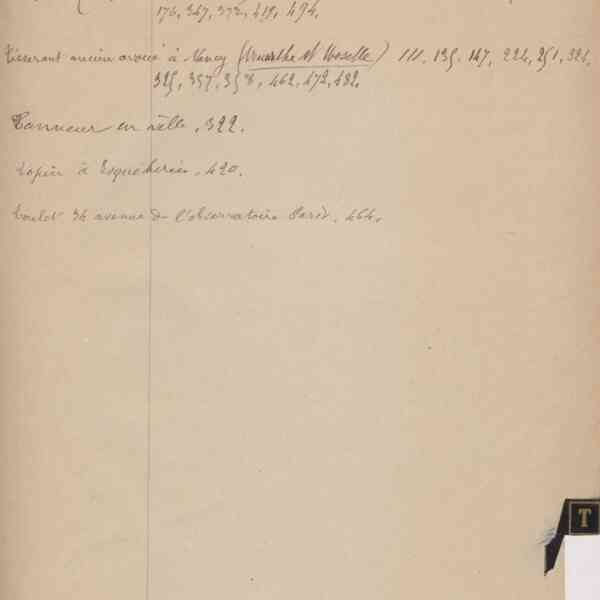 176, 347, 372, 419, 494.
Tisserant ancien avoué à Nancy (Meurthe et Moselle) 111, 135, 147, 224, 251, 321,
325, 357, 358, 462, 472, 482.
Tanneur en ville, 322.
Topin à Esquéheries, 420.
Toulot 34 avenue de l'observatoire Paris, 464.
T